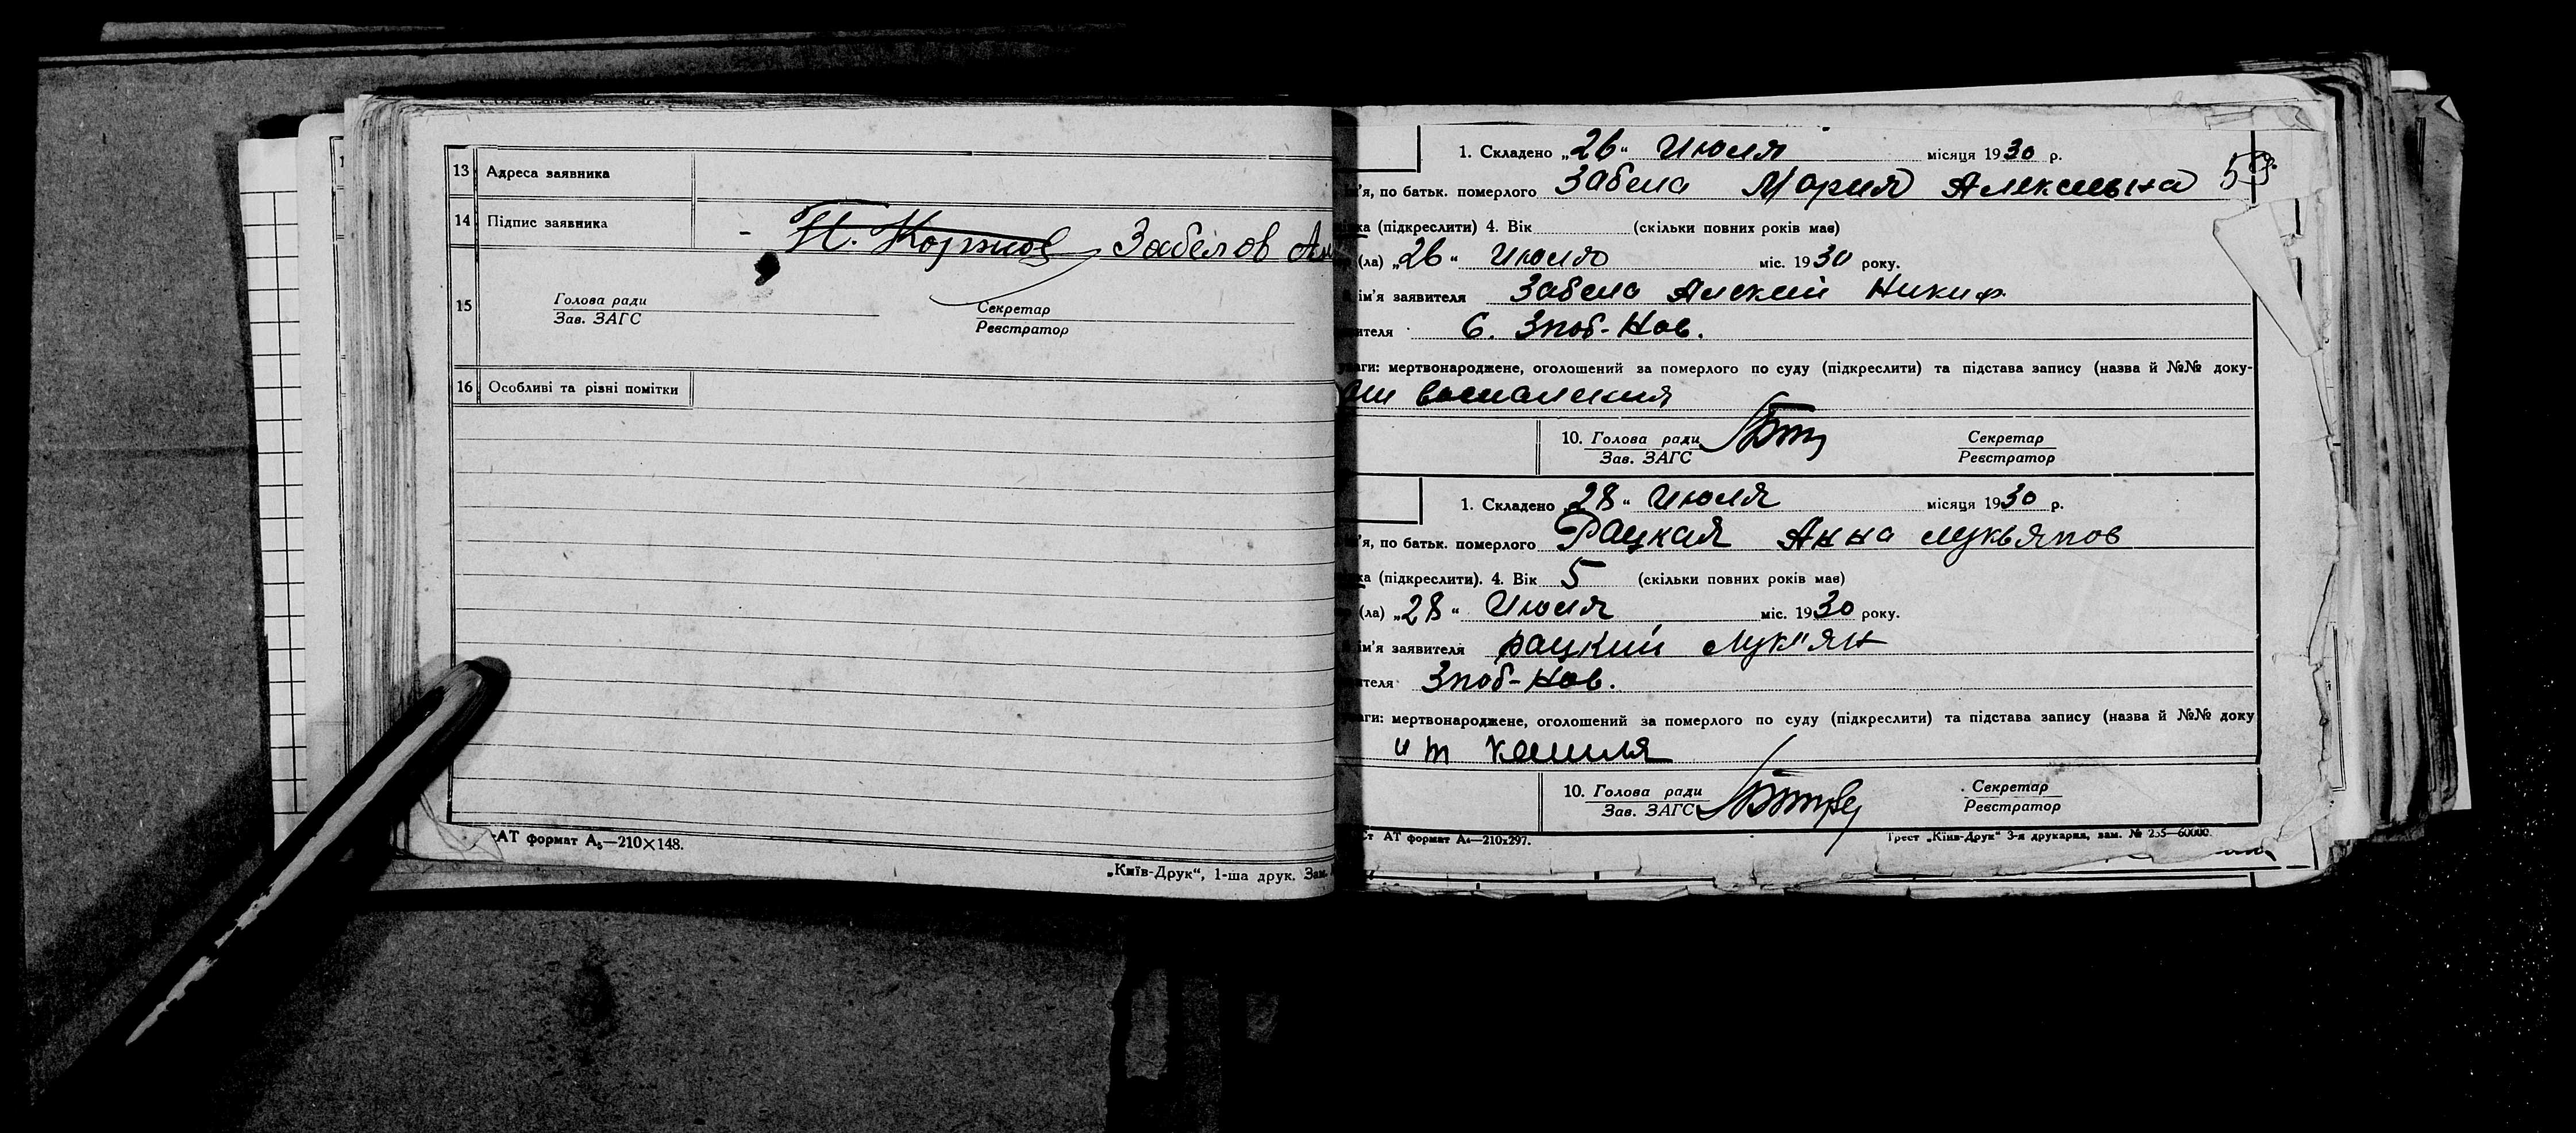 13 Адреса заявника
14 Підпис заявника
- Н. Коржов Забелов
15 Голова ради
Зав. ЗАГС
Секретар
Реєстратор
16 Особливі та різні помітки
АТ формат А5—210×148.
„Київ-Друк“, 1-ша друк. Зам.
1. Складено „26“ Июля місяця 1930 р.
53
м'я, по батьк. померлого Забела Мария Алексеевна
ка (підкреслити) 4. Вік (скільки повних років має)
(ла) „26“ Июля міс. 1930 року.
ім'я заявителя Забела Алексий Никиф
ителя С. Зноб-Нов.
ваги: мертвонароджене, оголошений за померлого по суду (підкреслити) та підстава запису (назва й №№ доку-
воспаления
10. Голова ради
Зав. ЗАГС
Секретар
Реєстратор
1. Складено „28“ Июля місяця 1930 р.
м'я, по батьк. померлого Рацкая Анна Лукьянов
ка (підкреслити). 4. Вік 5 (скільки повних років має)
(ла) „28“ Июля міс. 1930 року.
ім'я заявителя Рацкий Лук'ян
ителя Зноб-Нов.
ваги: мертвонароджене, оголошений за померлого по суду (підкреслити) та підстава запису (назва й №№ доку
от кашля
10. Голова ради
Зав. ЗАГС
Секретар
Реєстратор
Ст АТ формат А4—210x297.
Трест „Київ-Друк“ 3-я друкарня, зам. № 255—60000.